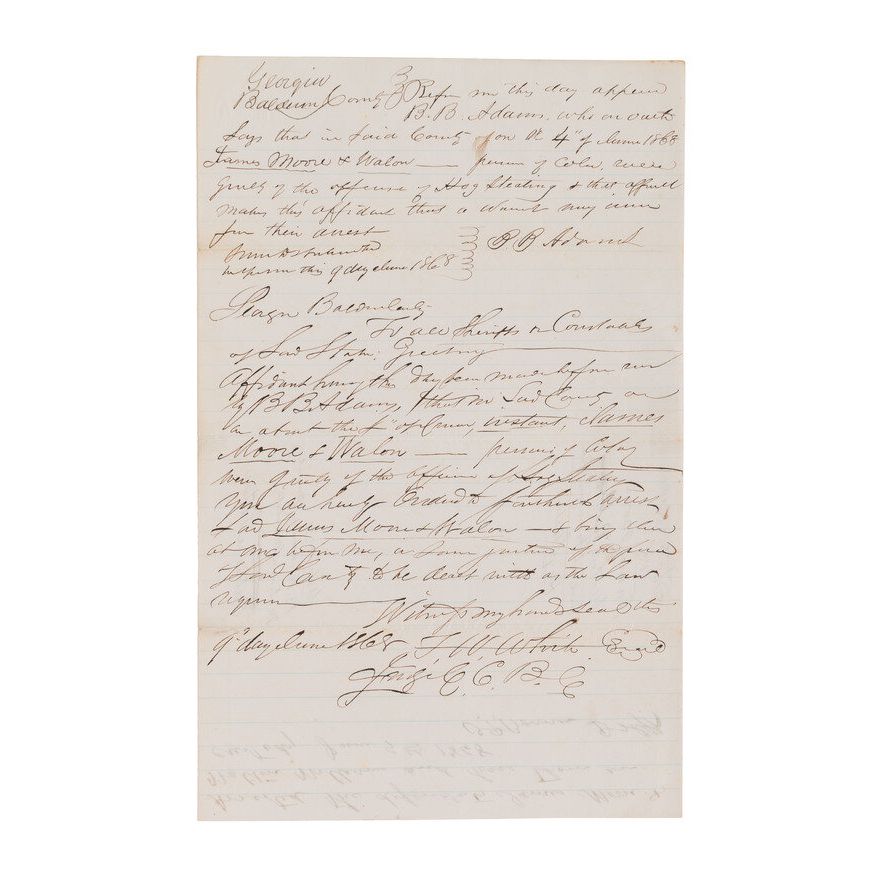 Georgia
Baldwin County } Before me this day appeared
B. B. Adams, who on oath
Says that in Said County on the 4" of June 1868
James Moore & Walon — persons of Color were
guilty of the offense of Hog Stealing & that affiant
makes this affidavit that a warrant may issue
for their arrest
Sworn to & subscribed to B B Adams
before me this 9 day June 1868
Georgia Baldwin County
To all Sheriffs or Constables
of Said State: Greeting
Affidavit having this day been made before me
by B B Adams, that in Said County, on
or about the 4" of June, instant, James
Moore & Walon — persons of Color
were guilty of the offense of Hog Stealing
You are hereby Ordered to forthwith arrest
Said James Moore & Walon — & bring them
at once before me, or Some justice of the peace
of Said County to be dealt with as the Law
requires
Witness my hand & Seal this
9" day June 1868 White Seal
Judge C. C. B. C
custody June 9th 1868
and
Arrested the defendants James Moore &